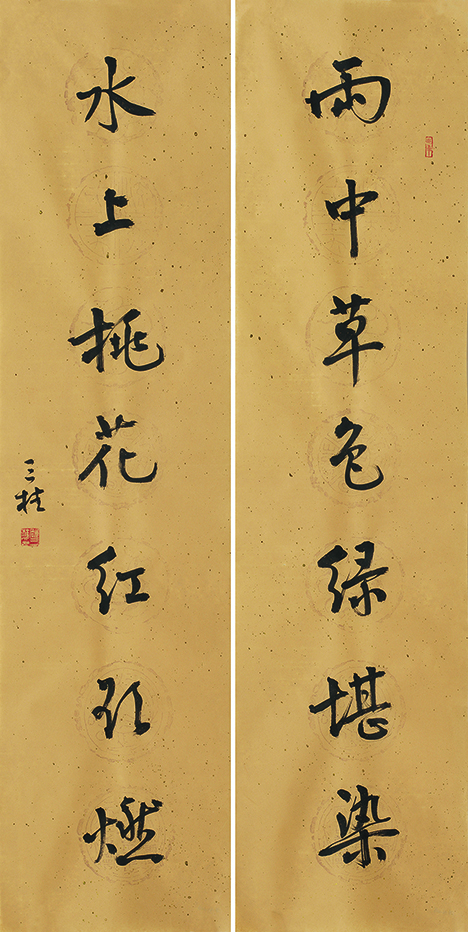 雨中草色绿堪染
水上桃花红欲燃